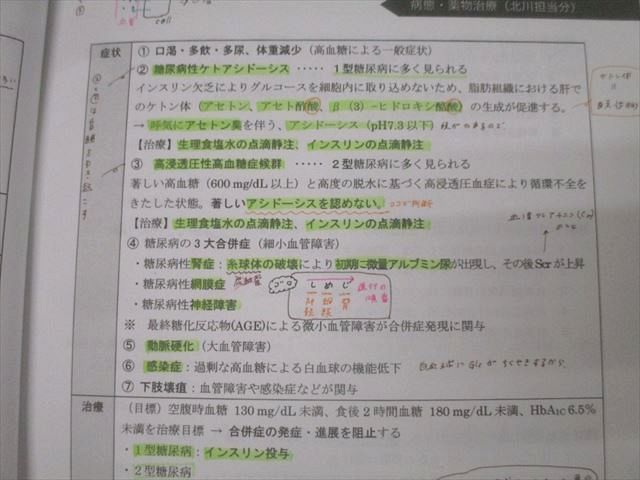 cell
病態・薬物治療（北川担当分）
症状
① 口渇・多飲・多尿、体重減少（高血糖による一般症状）
② 糖尿病性ケトアシドーシス ‥‥‥ 1型糖尿病に多く見られる
インスリン欠乏によりグルコースを細胞内に取り込めないため、脂肪組織における肝で
のケトン体（アセトン、アセト酢酸、β（3）-ヒドロキシ酪酸）の生成が促進する。
→ 呼気にアセトン臭を伴う、アシドーシス（pH7.3以下）
【治療】生理食塩水の点滴静注、インスリンの点滴静注
③ 高浸透圧性高血糖症候群 ‥‥‥ 2型糖尿病に多く見られる
著しい高血糖（600 mg/dL 以上）と高度の脱水に基づく高浸透圧血症により循環不全を
きたした状態。著しいアシドーシスを認めない。
【治療】生理食塩水の点滴静注、インスリンの点滴静注
④ 糖尿病の3大合併症（細小血管障害）
・糖尿病性腎症：糸球体の破壊により初期に微量アルブミン尿が出現し、その後Scrが上昇
・糖尿病性網膜症
しめじ
・糖尿病性神経障害
※ 最終糖化反応物(AGE)による微小血管障害が合併症発現に関与
⑤ 動脈硬化（大血管障害）
⑥ 感染症：過剰な高血糖による白血球の機能低下
⑦ 下肢壊疽：血管障害や感染症などが関与
治療
（目標）空腹時血糖 130 mg/dL 未満、食後2時間血糖 180 mg/dL 未満、HbA1c 6.5%
未満を治療目標 → 合併症の発症・進展を阻止する
・1型糖尿病：インスリン投与
・2型糖尿病